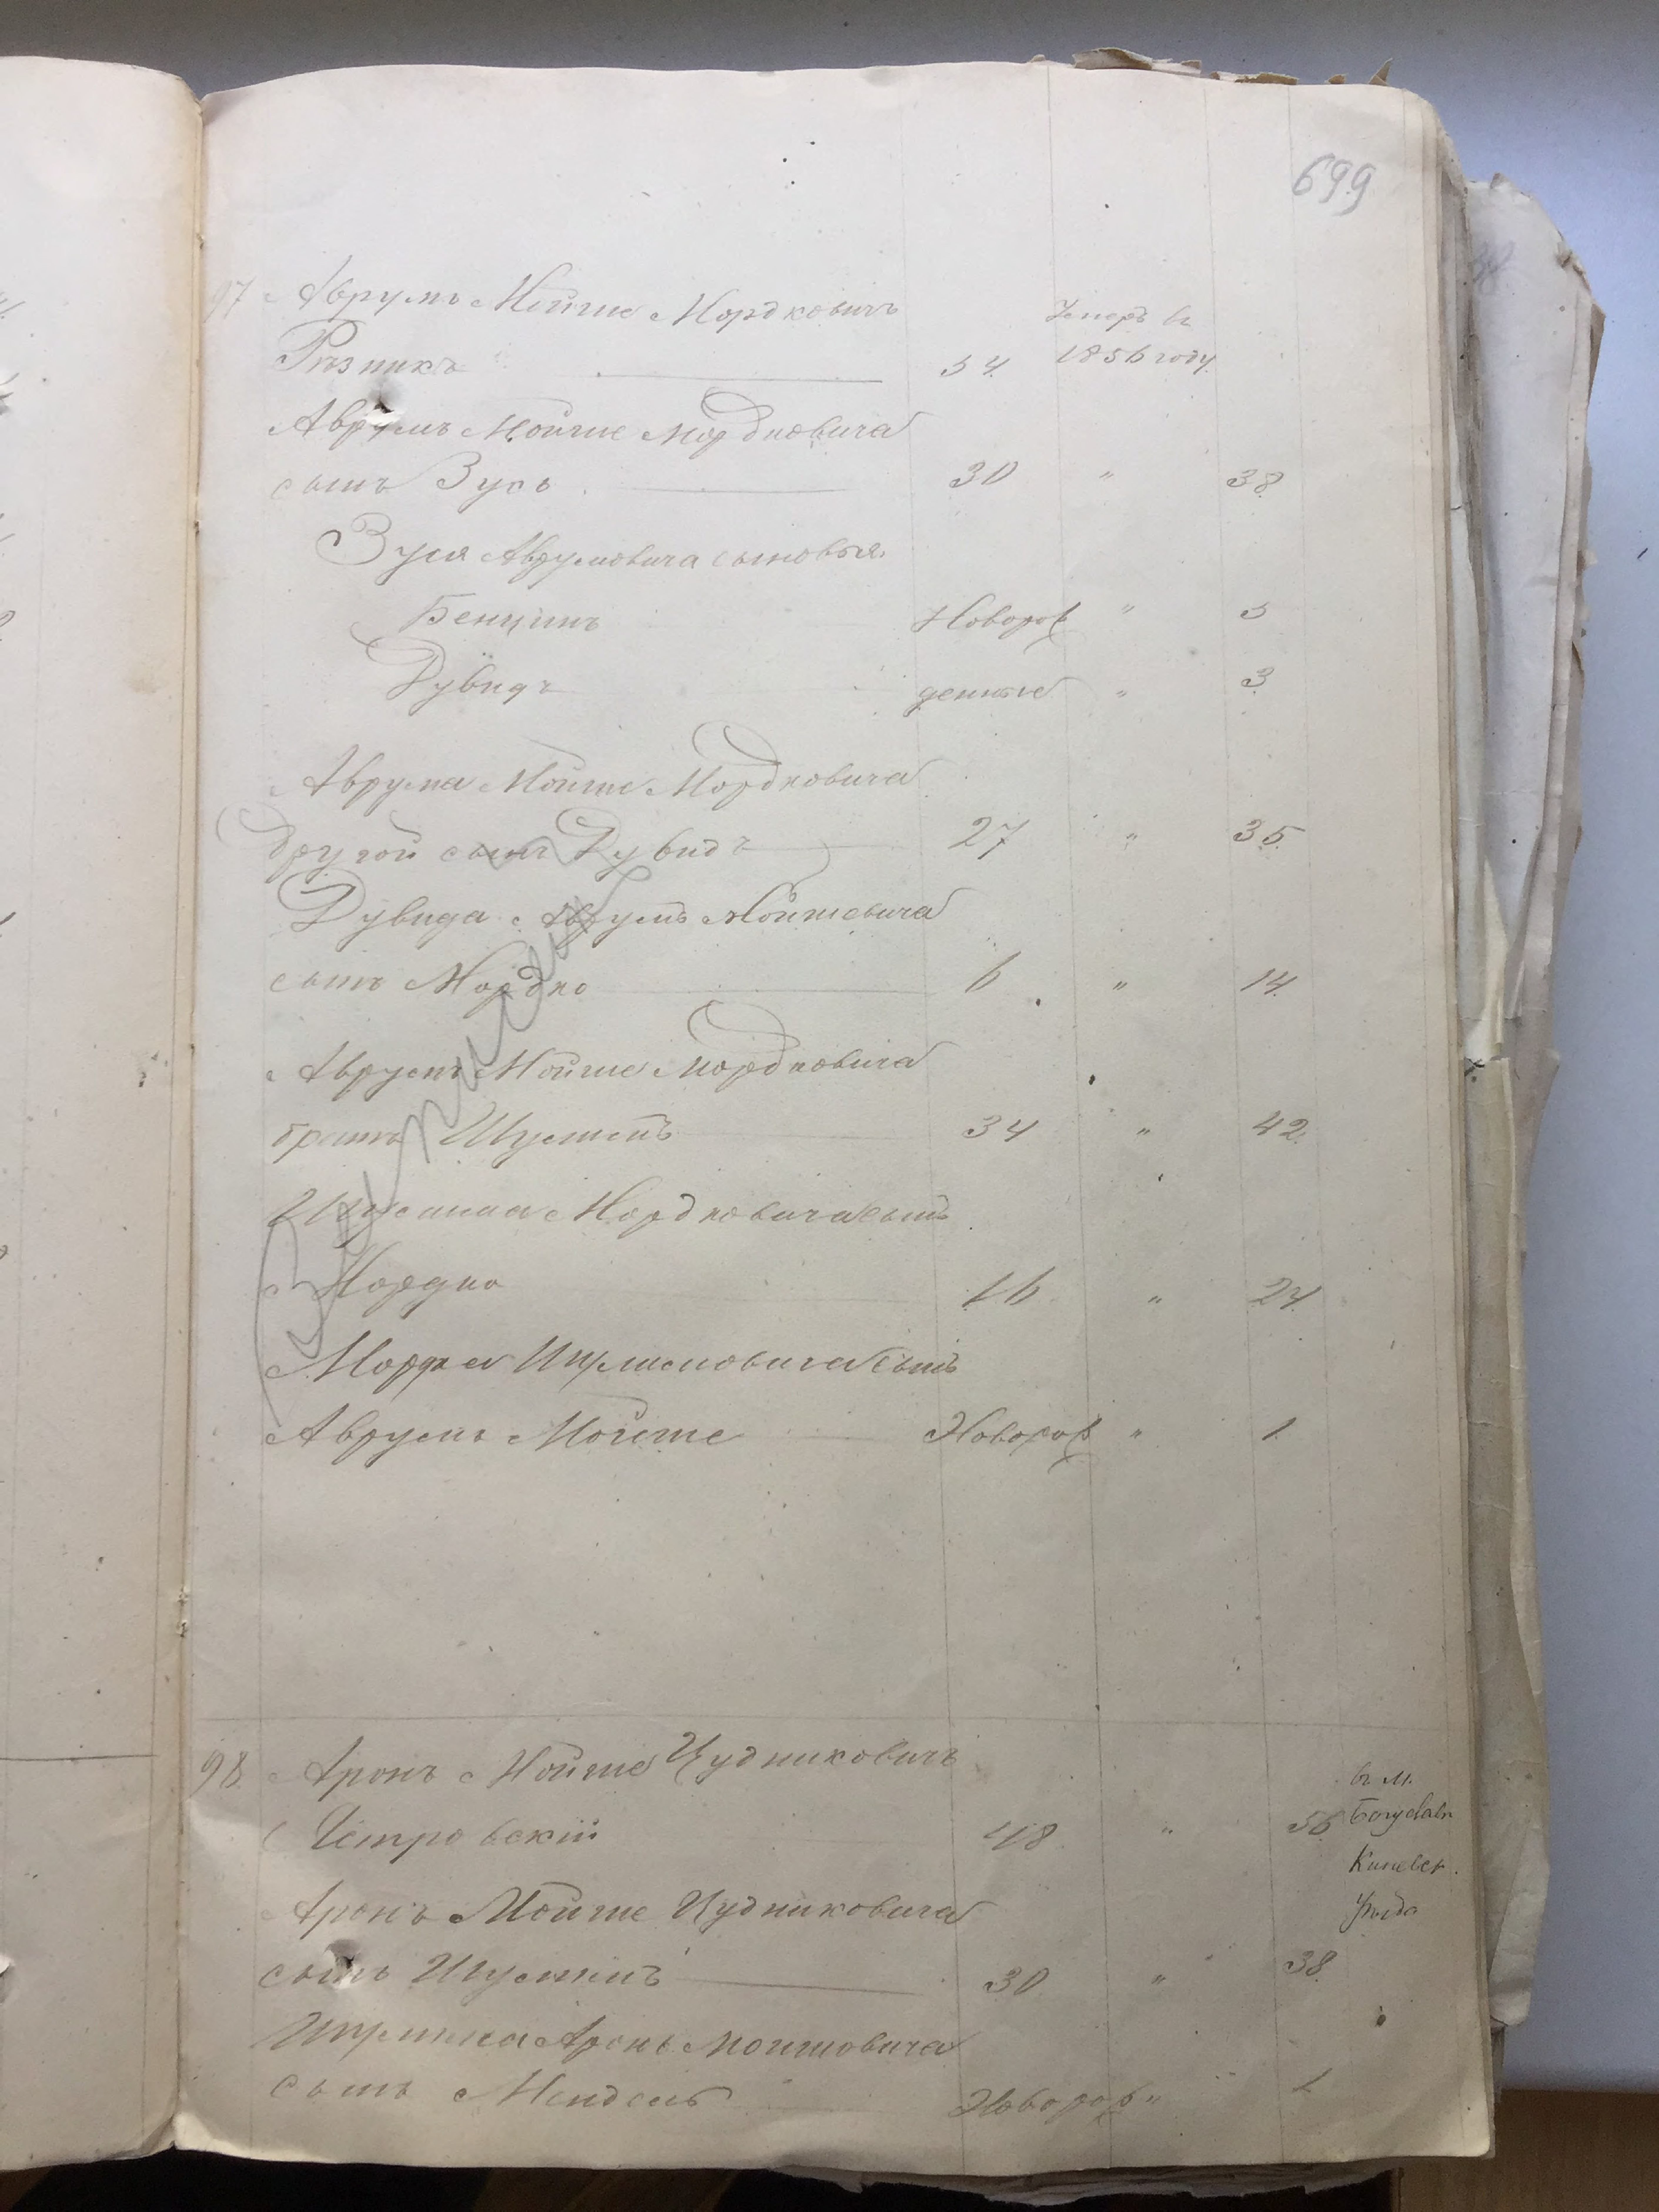 699
97 Аврумъ Мойше Мордковичъ
Умеръ въ
Рѣзникъ 54. 1856 году.
Аврумъ Мойше Мордковича
сынъ Зусь 30 " 38
Зуся Аврумовича сыновья
Бенцинъ Новорож " 5
Дувидъ денные " 3
Аврума Мойше Мордковича
другой сынъ Дувидъ 27 " 35
Дувида Аврумъ Мойшевича
сынъ Мордко 6 " 14.
Аврумъ Мойше Мордковича
братъ 34 " 42.
Мордковича сынъ
Мордко 16 " 24
Мордка сынъ
Аврумъ Мойше Новорож " 1
98. Аронъ Мойше Цудиковичъ
въ м.
48 " 56 Богуславѣ
Киевск.
Аронъ Мойше Цудиковича
Уѣзда
сынъ 30 " 38
Аронъ Мойшовича
сынъ Мендель Новорож " 1